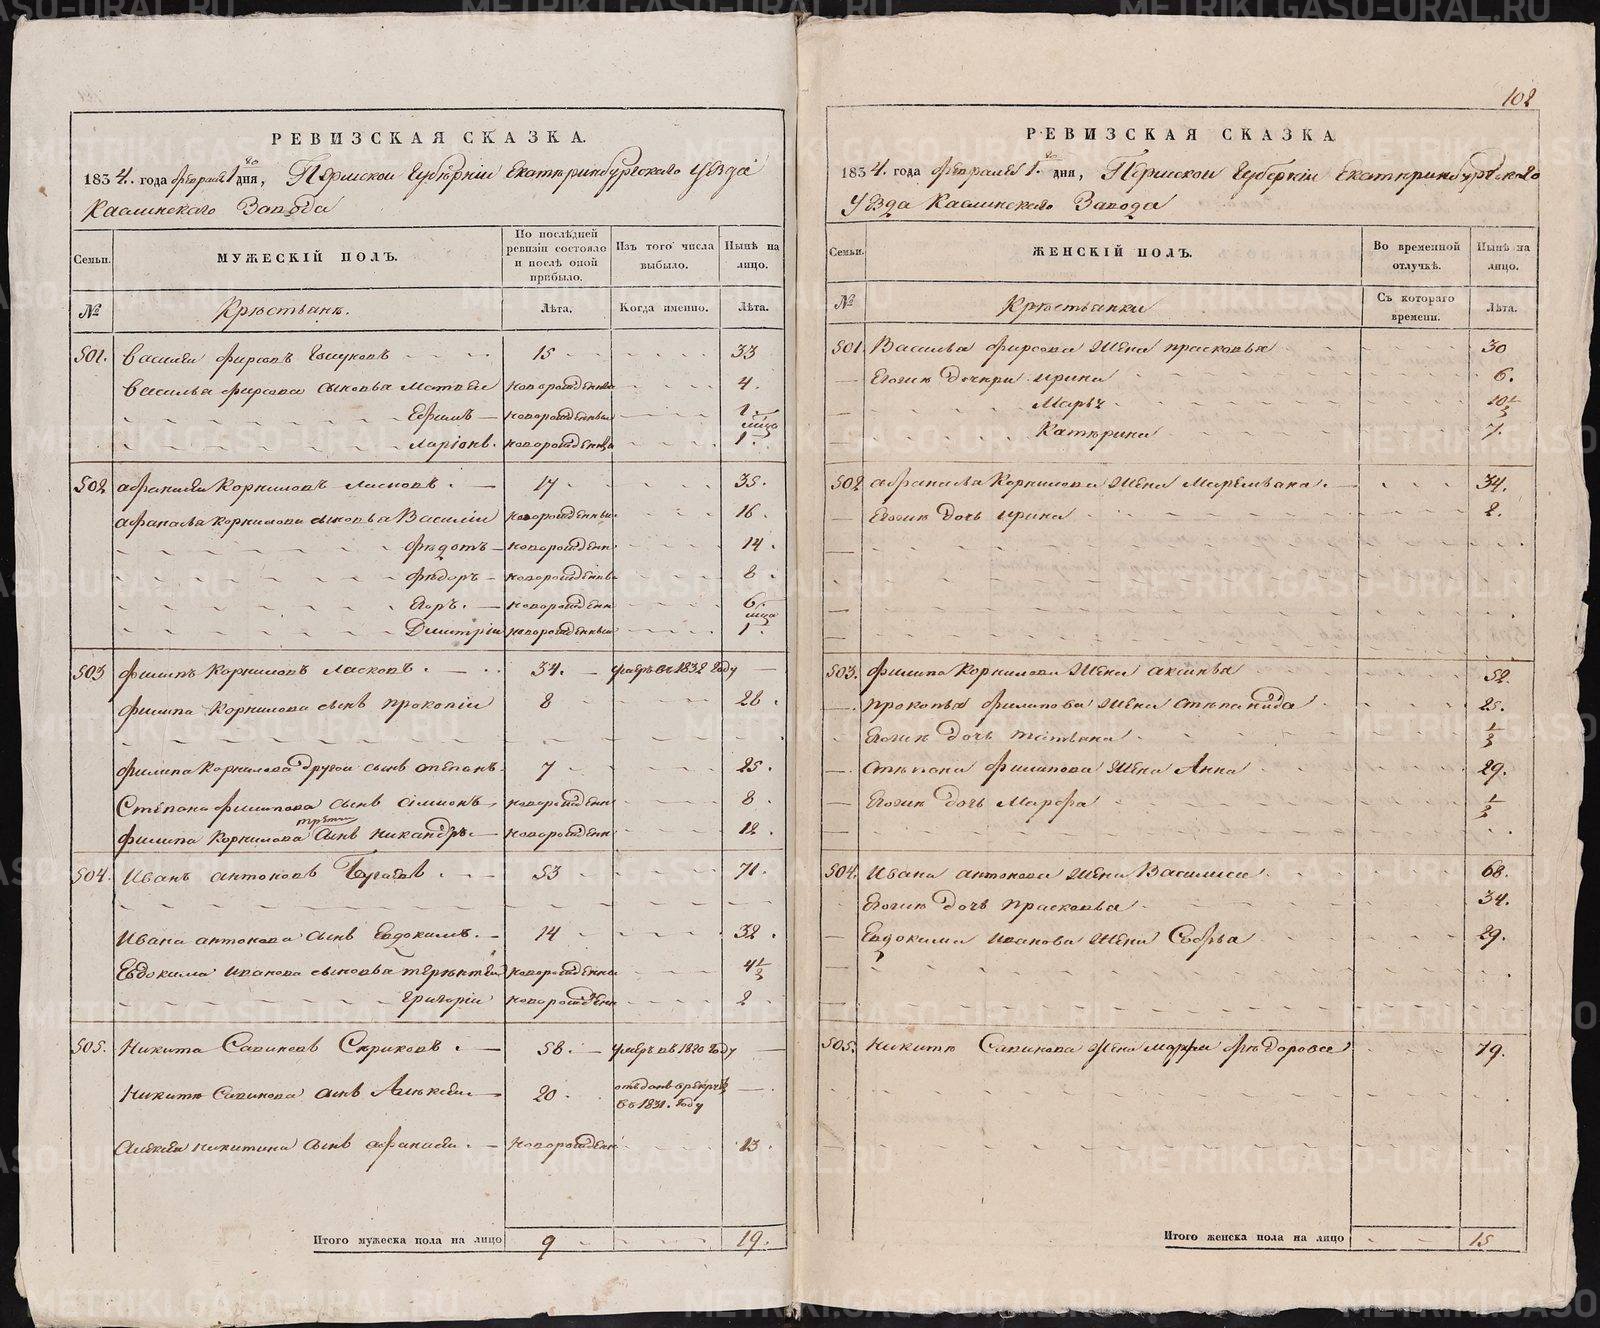 102
РЕВИЗСКАЯ СКАЗКА.
1834. года февраля 1го дня, Пермской Губерніи Екатеринбургскаго Уезда
Каслинскаго Завода
Семьи.
МУЖЕСКІЙ ПОЛЪ.
По послѣдней ревизіи состояло и послѣ оной прибыло.
Изъ того числа выбыло.
Нынѣ на лицо.
№
Крестьяне.
Лѣта.
Когда именно.
Лѣта.
501. Василей фирсовъ 15 33
Василья фирсова сыновья Матвей новорожденны 4.
Ефимъ новорожденны 1
Ларіонъ. новорожденны 1.
502 афанасей Корниловъ Ласковъ. 17 35.
афанасья Корнилова сыновья Василіи новорожденны 16.
федотъ новорожденн 14.
федоръ новорожденны 8.
Егоръ. новорожденн 6
Дмитріи новорожденны 1.
503 филипъ Корниловъ Ласковъ. 34. умеръ въ 1832 году
филипа Корнилова сынъ прокопіи 8 26.
филипа Корнилова другой сынъ степанъ. 7 25.
Степана филипова сынъ симионъ новорожденн 8.
трети
филипа Корнилова сынъ никандръ. новорожденн 12.
504. Иванъ антоновъ 53 71.
Ивана антонова сынъ Евдокимъ. 14 32.
Евдокима иванова сыновья терентей новорожденны 4½
Григоріи новорожденн 2
505. Никита Савиновъ Скриповъ. 58. умеръ въ 1820 году
Никиты Савинова сынъ Алексей 20. отъданъ в рекруты въ 1831. году
Алексея никитина сынъ афанасей. новорожденн 13.
Итого мужеска пола на лицо 9 19.
РЕВИЗСКАЯ СКАЗКА
1834. года февраля 1. дня, Пермской Губерніи Екатеринбургскаго
Уезда Каслинскаго Завода
Семьи.
ЖЕНСКІЙ ПОЛЪ.
Во временной отлучкѣ.
Нынѣ на лицо.
№
Крестьянки
Съ котораго времени.
Лѣта.
501. Василья фирсова жена прасковья 30
Егожъ дочери ирина 6.
Марья 10½
Катерина 7.
502 афанасья Корнилова жена 34.
Егожъ дочь ирина 2.
503. филипа Корнилова жена аксинья 52.
прокопья филипова жена степанида 25.
Егожъ дочь татьяна ½
степана филипова жена Анна 29.
Егожъ дочь Марфа ½
504. Ивана антонова жена Василиса 68.
Егожъ дочь прасковья 34.
Евдокима иванова жена Софья 29.
505. Никиты Савинова жена марфа федорова 79.
Итого женска пола на лицо 15
METRIKI.GASO-URAL.RU